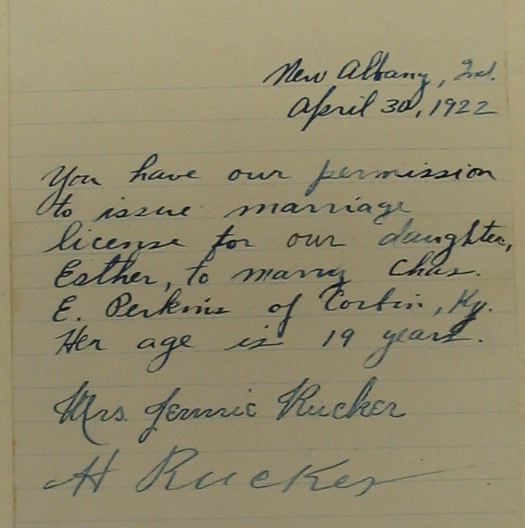 New Albany, Ind.
April 30, 1922
You have our permission
to issue marriage
license for our daughter,
Esther, to marry Chas.
E. Perkins of Corbin, Ky.
Her age is 19 years.
Mrs. Jennie Rucker
H Rucker